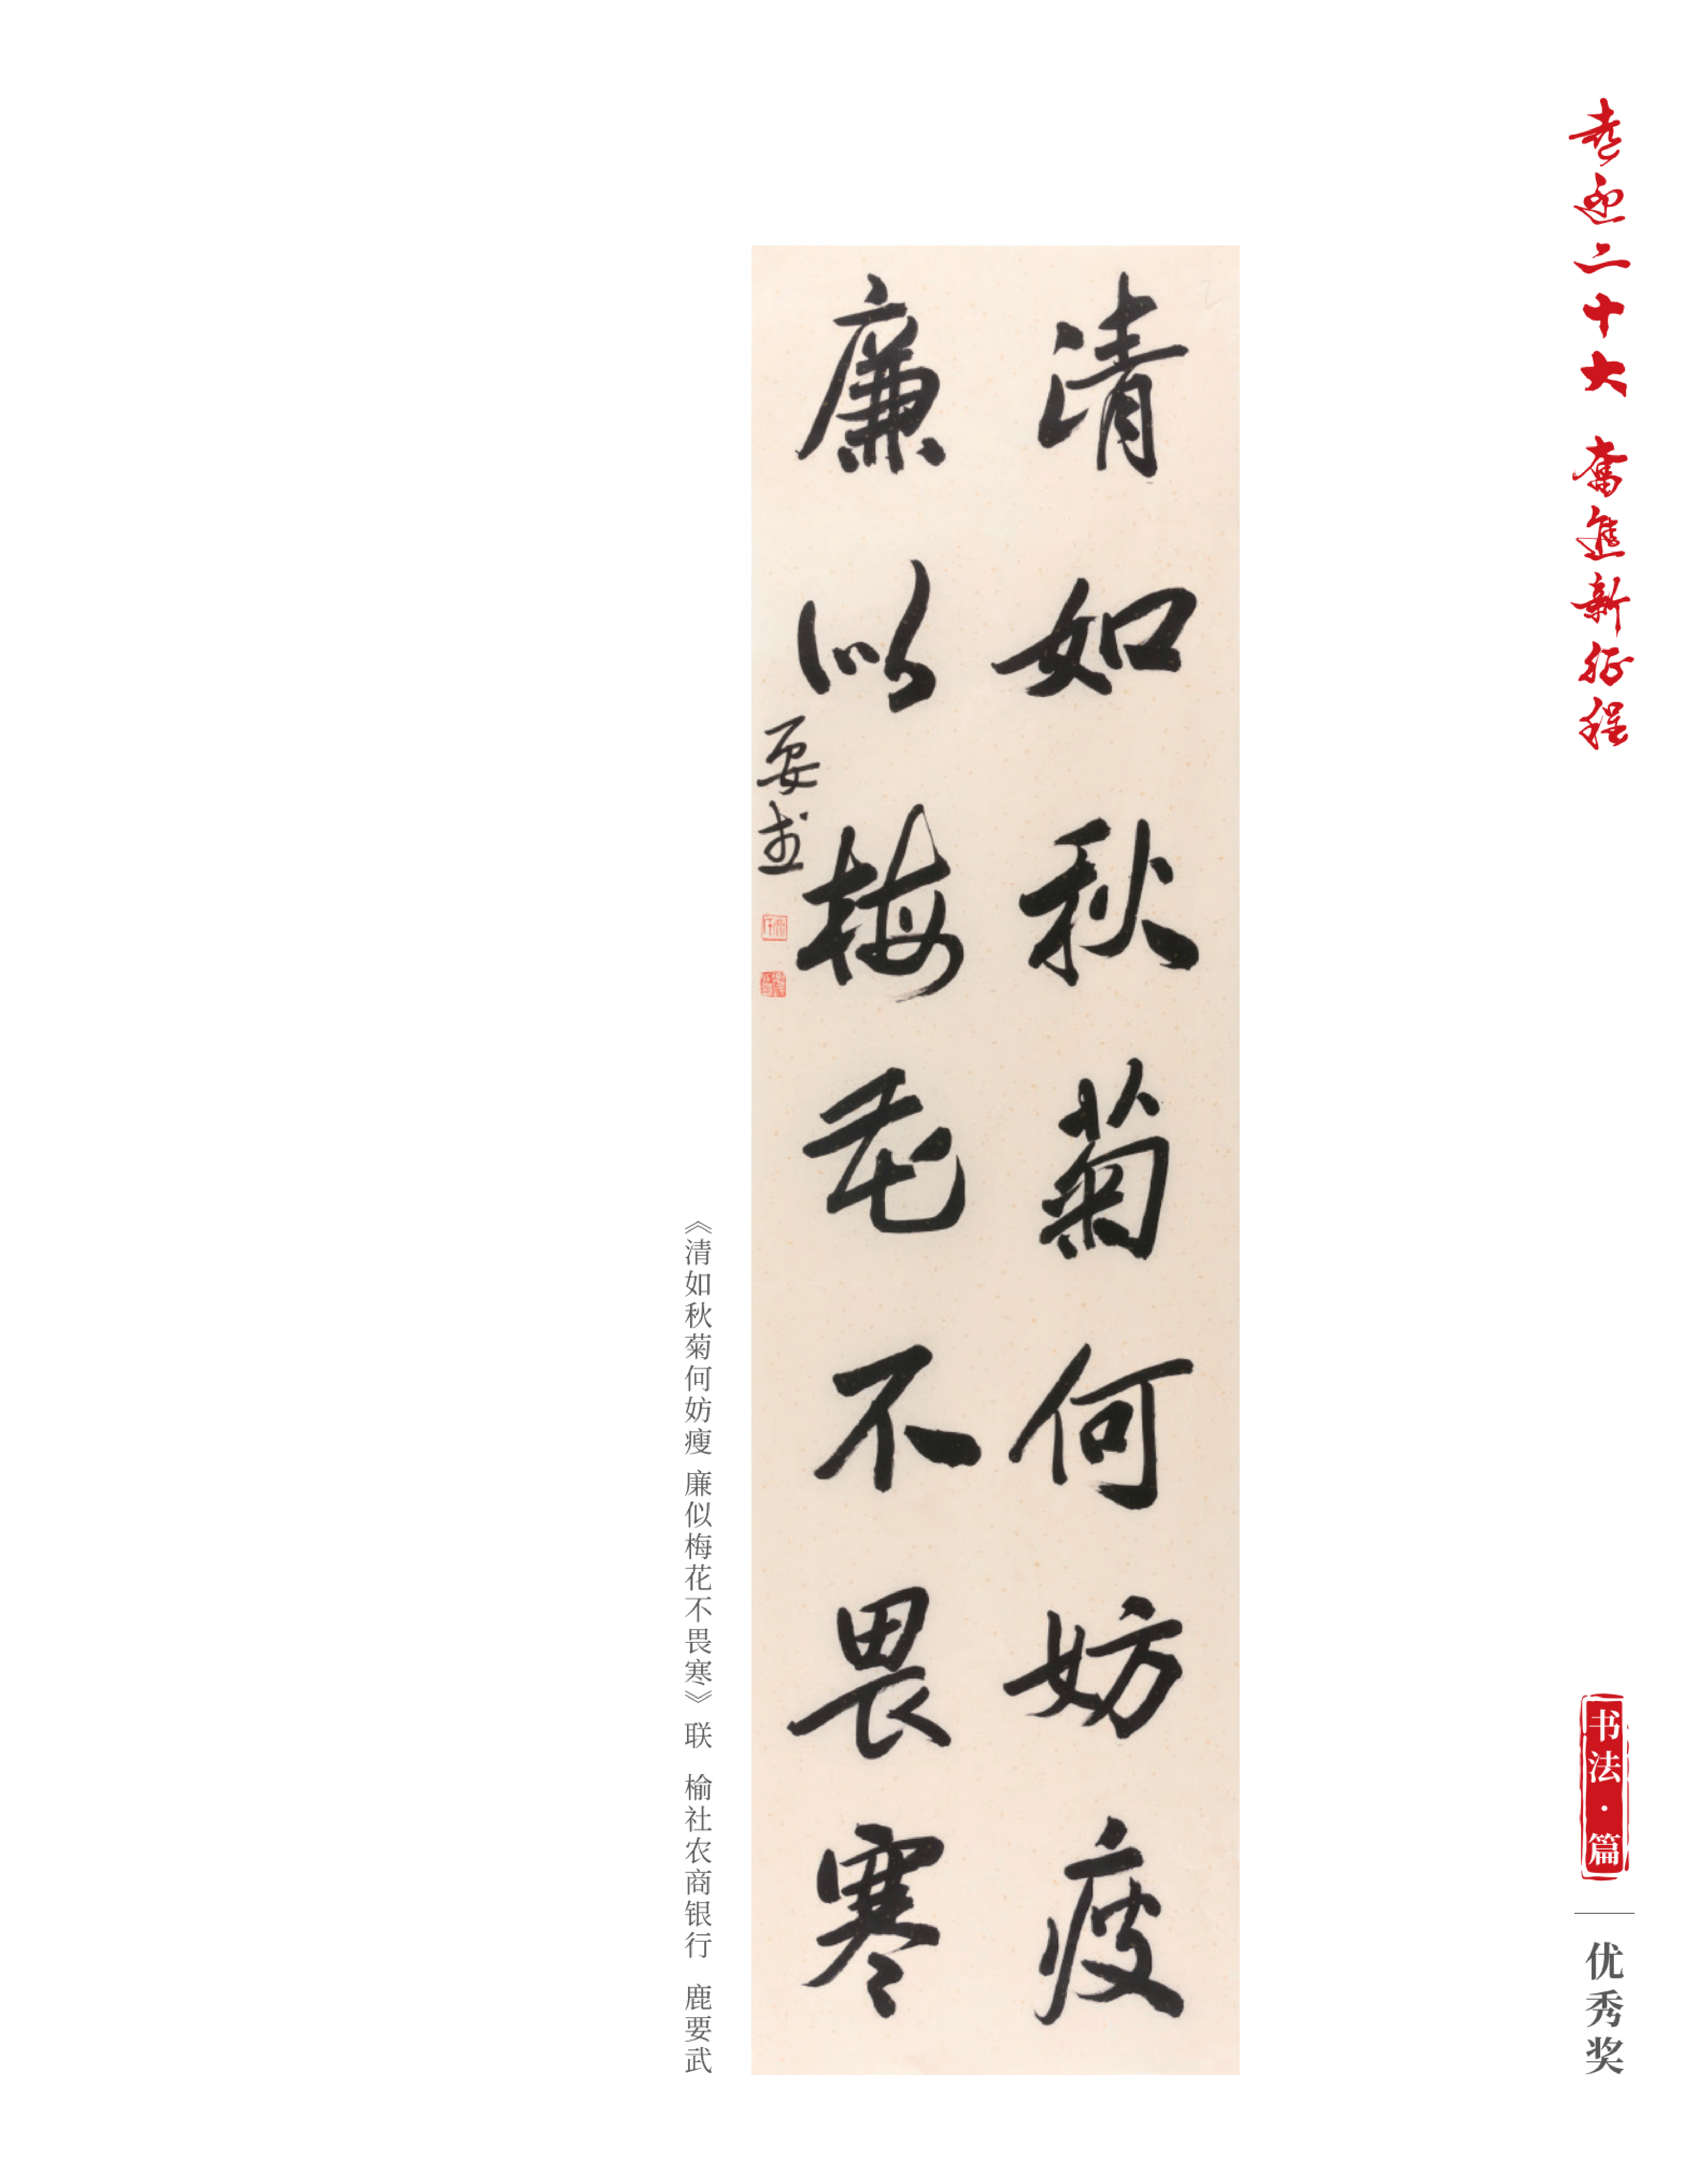 喜迎二十大 奮進新征程
清如秋菊何妨瘦
廉似梅花不畏寒
要武
《清如秋菊何妨瘦 廉似梅花不畏寒》联 榆社农商银行 鹿要武
书法·篇
优秀奖